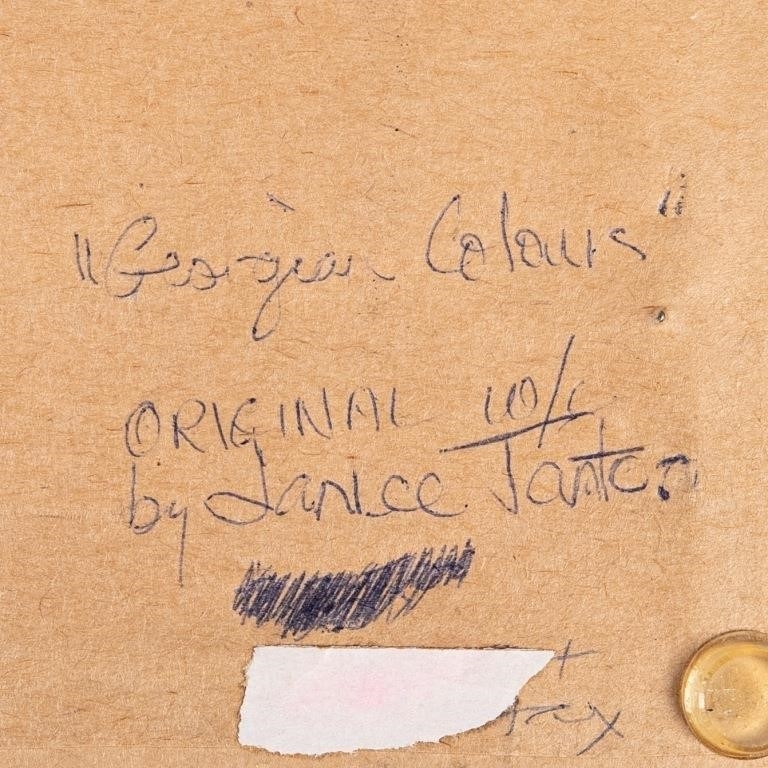 "Georgian Colours"
ORIGINAL W/C
by Janice Tanton
+
tax